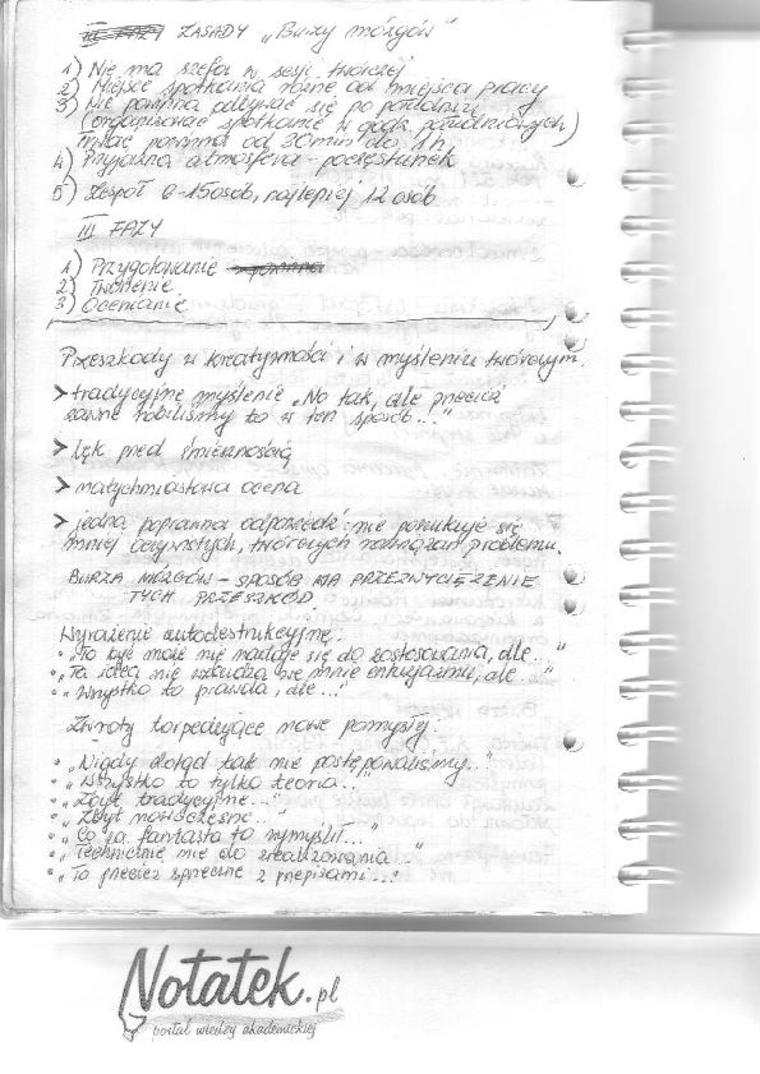 III FAZY ZASADY „Burzy mózgów"
1) Nie ma szefa w sesji twórczej
2) Miejsce spotkania różne od miejsca pracy
3) Nie powinna odbywać się po południu
(organizować spotkanie w godz. południowych)
Trwać powinna od 30min do 1h
4) Przyjazna atmosfera - poczęstunek
5) Zespół 6-15osób, najlepiej 12 osób
III FAZY
1) Przygotowanie
2) Tworzenie
3) Ocenianie
Przeszkody w kreatywności i w myśleniu twórczym:
> tradycyjne myślenie „No tak, ale przecież
zawsze robiliśmy to w ten sposób..."
> lęk przed śmiesznością
> natychmiastowa ocena
> jedna poprawna odpowiedź: nie poszukuje się
mniej oczywistych, twórczych rozwiązań problemu.
BURZA MÓZGÓW - SPOSÓB NA PRZEZWYCIĘŻENIE
TYCH PRZESZKÓD.
Wyrażenie autodestrukcyjne:
• „To być może nie nadaje się do zastosowania, ale..."
• „Ta idea nie wzbudza we mnie entuzjazmu, ale..."
• „Wszystko to prawda, ale..."
Zwroty torpedujące nowe pomysły:
• „Nigdy dotąd tak nie postępowaliśmy..."
• „Wszystko to tylko teoria..."
• „Zbyt tradycyjne..."
• „Zbyt nowoczesne..."
• „Co za fantasta to wymyślił..."
• „Technicznie nie do zrealizowania..."
• „To przecież sprzeczne z przepisami..."
Notatek.pl
portal wiedzy akademickiej